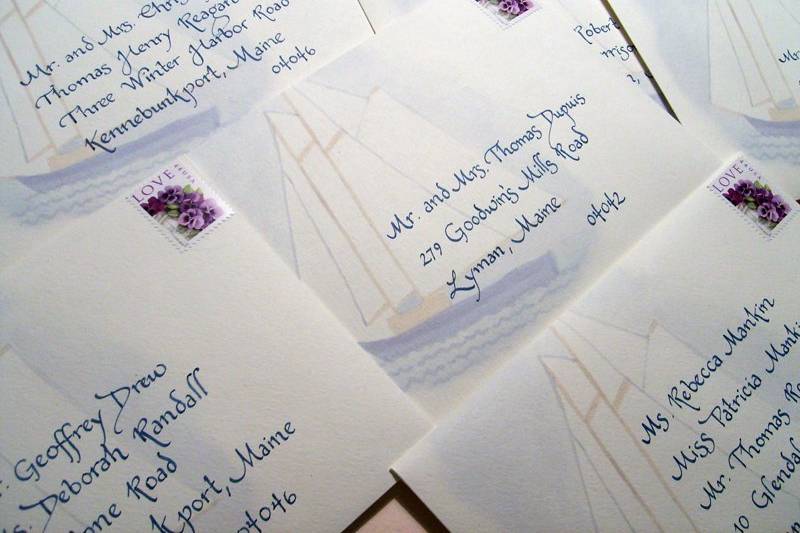 Mr. and Mrs. Chris
Thomas Henry Reagan
Three Winter Harbor Road
Kennebunkport, Maine
04046
Robert
LOVE
Mr. and Mrs. Thomas Dupuis
279 Goodwin's Mills Road
Lyman, Maine
04042
LOVE
Geoffrey Drew
Deborah Randall
Road
kport, Maine
04046
Ms Rebecca Mankin
Miss Patricia Manki
Mr. Thomas Ro
10 Glendal